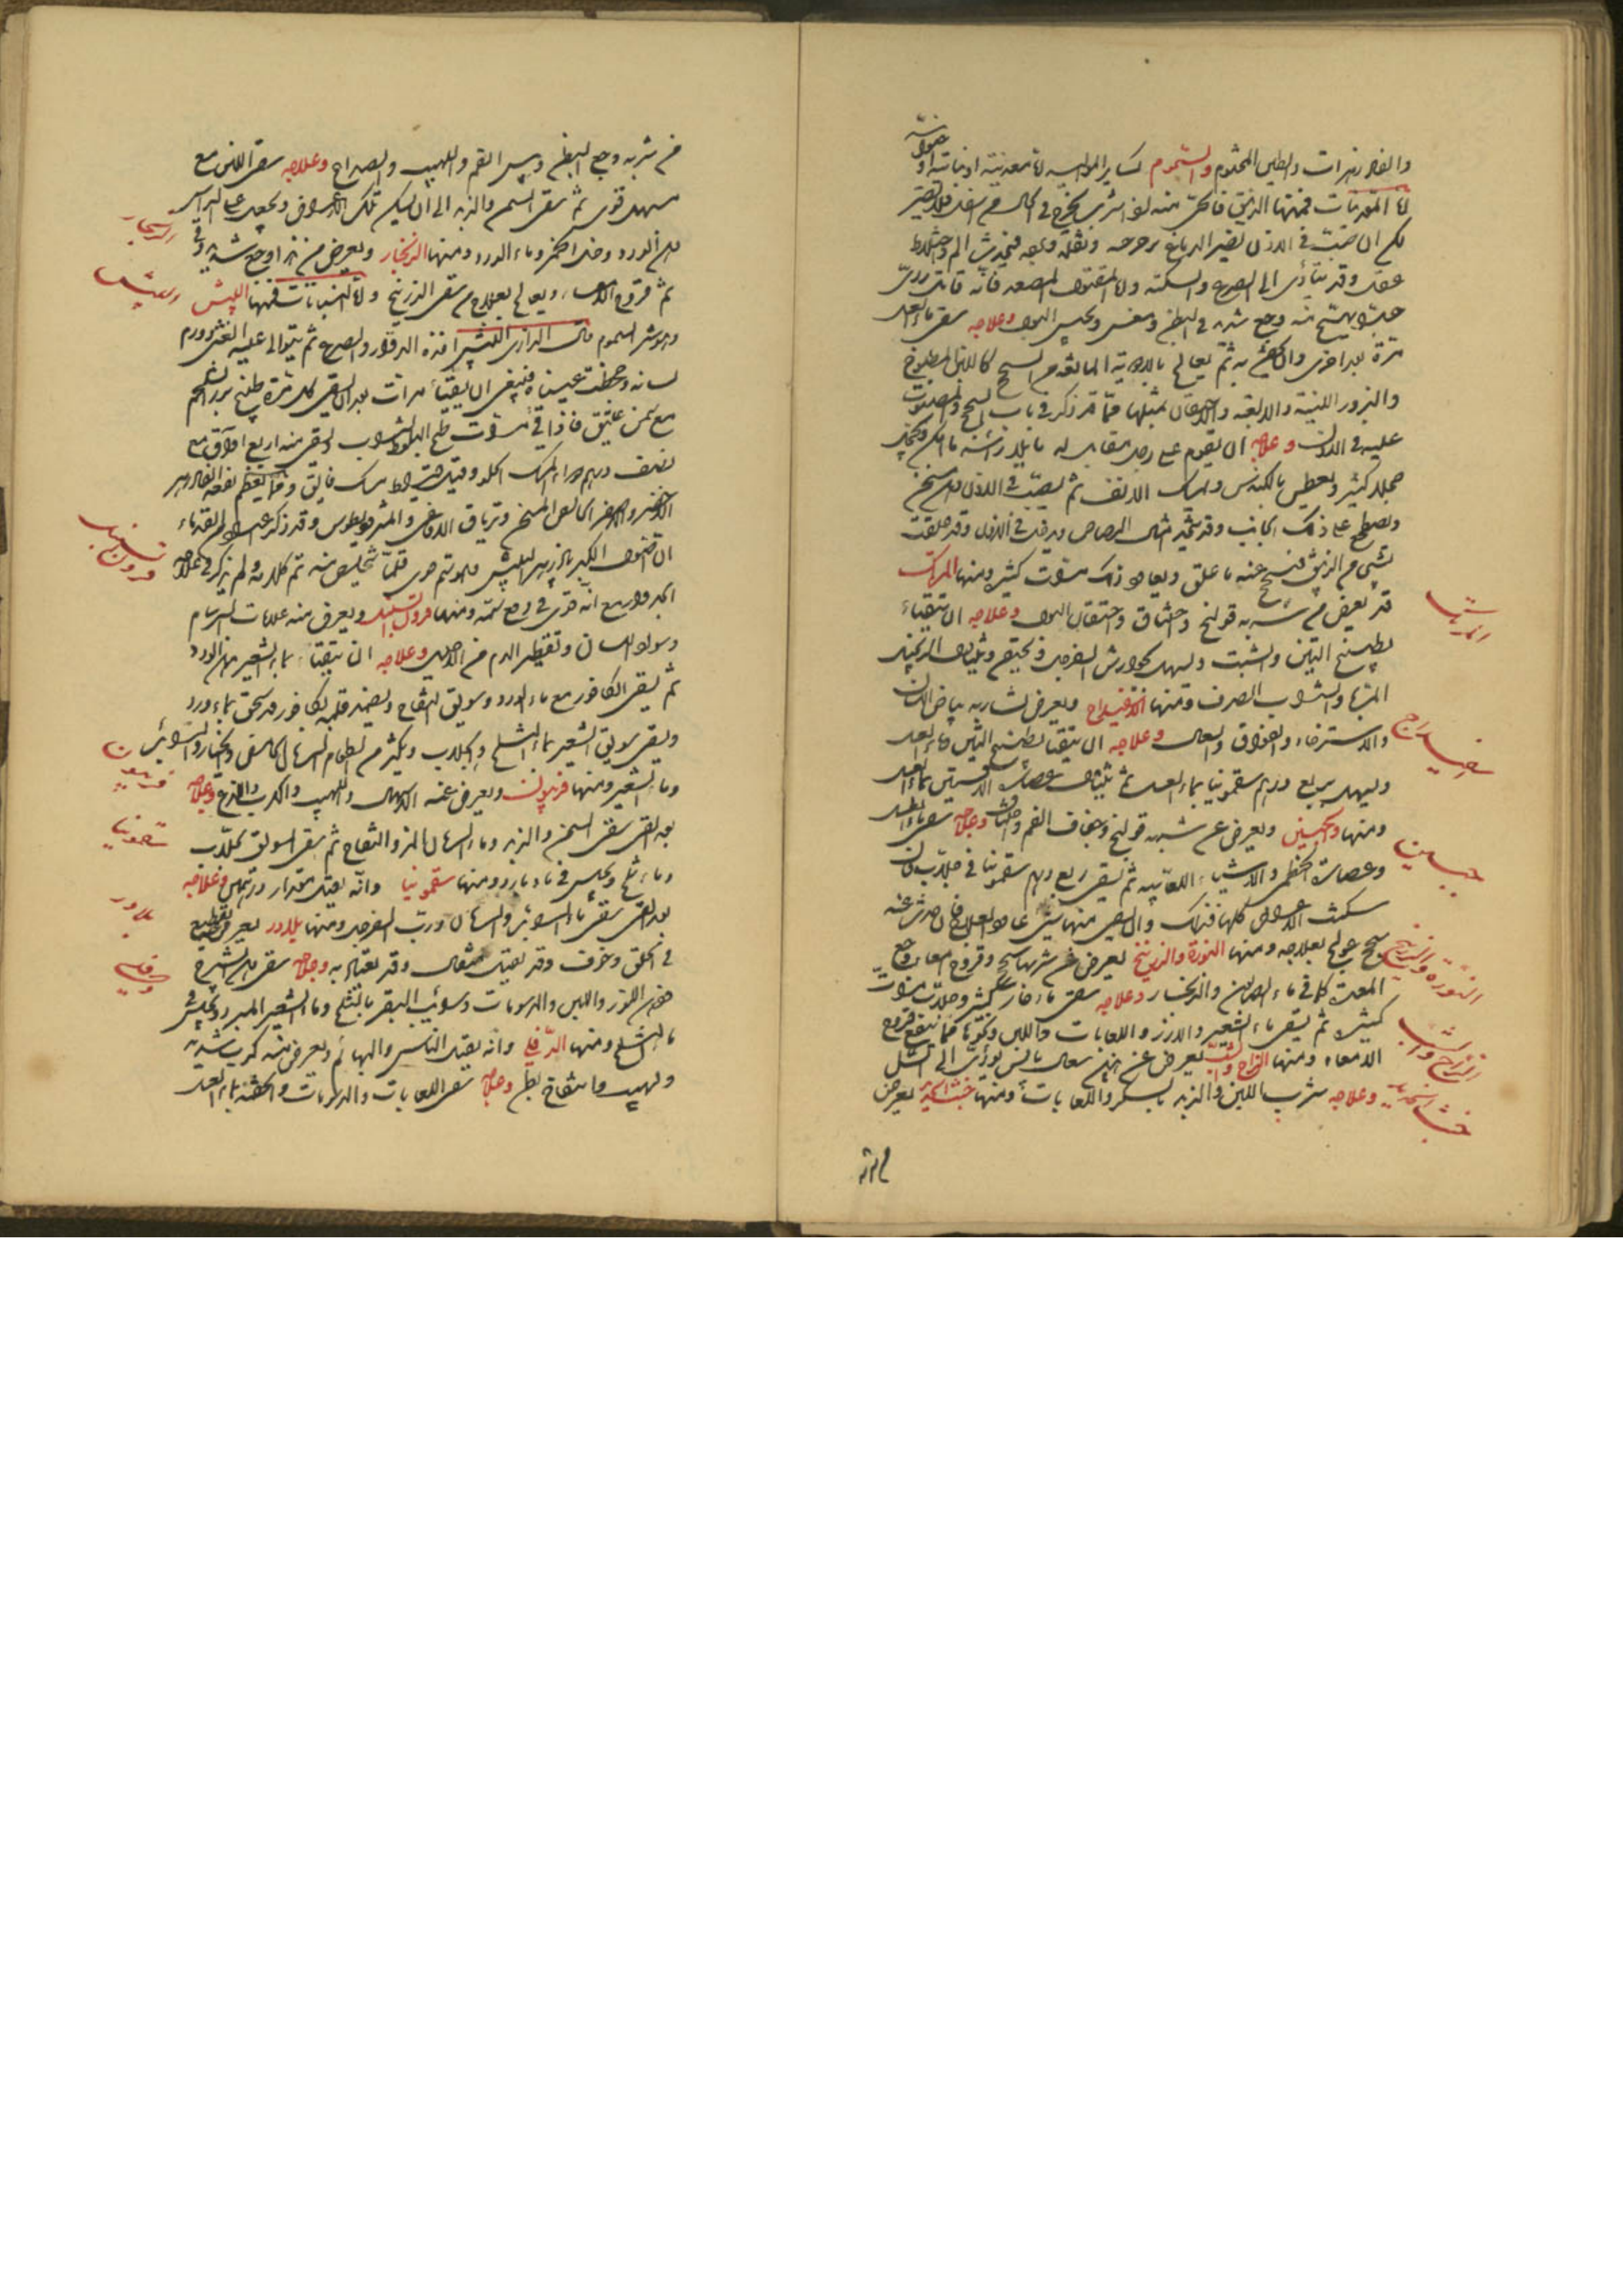 والفادزهرات والطين المختوم والسموم كساير المواليد لانها معدنية او نباتية او حيوانية
اما المعدنيات فمنها الزئبق فالحى منه لو شرب يخرج فى الحال من اسفل فلا يضر
لكن ان صب فى الاذن يضر الدماغ برجرجه وثقله وبرده فيحدث الم واختلاط
عقل وقد يتأدى الى الصرع والسكتة واما المقتول المصعد فانه قاتل ردى
حيث يهيج منه وجع شديد فى البطن ومغس ويحبس البول وعلاجه سقى ماء العسل
مرة بعد اخرى والحقن به ثم يعالج بالادوية المانعة من السحج كاللبن المطبوخ
والبزور اللينة والالعبة والاحتقان بمثلها مما قد ذكر فى باب السحج والمصبوب
عليه فى الاذن وعلاجه ان يقوم على رجل مقابل له مايلا راسه
حجلا كثيرا ويعطس بالكندس وامساك الانف ثم يصب فى الاذن دهن سخن
ويضطجع على ذلك الجانب وقد يتخذ ميل الرصاص ويدخل فى الاذن وقد علقت
شيئ من الزئبق فيمسح عنه ما علق ويعاود ذلك مرات كثيرة ومنها المرتك
قد يعرض من شربه قولنج واختناق واحتقان البول وعلاجه ان يتقيأ
بطبيخ التين والشبت ويسهل بجوارش السفرجل ويحتقن ويتناول الزنجبيل
المربى والشراب الصرف ومنها الاسفيداج ويعرض لشاربه بياض اللسان
والاسترخاء والفواق والسعال وعلاجه ان يتقيأ بطبيخ التين وماء العسل
ويسهل بربع درهم سقمونيا بماء العسل ثم يتناول عصارة الافسنتين بماء العسل
ومنها الجبسين ويعرض عن شربه قولنج وجفاف الفم واختناق وعلاجه سقى ماء العسل
وعصارة الخطمى والاشياء اللعابية ثم يسقى ربع درهم سقمونيا فى جلاب فان
سكنت الاعراض كلها فذاك وان بقى منها شيئ عاود العلاج فان حدث عنه
سحج عولج بعلاجه ومنها النورة والزرنيخ يعرض عن شربها سحج وقروح امعاء ووجع
المعدة كما فى ماء الصابون والزنجار وعلاجه سقى ماء حار كثير وجلاب مرات
كثيرة ثم يسقى ماء الشعير والارز واللعابات واللبن ونحوها مما ينفع قروح
الامعاء ومنها الزاج والشب يعرض عن اخذهن سعال يابس يؤدى الى السل
وعلاجه شرب اللبن والزبد بالسكر واللعابات ومنها خبث الحديد يعرض
المرتك
اسفيداج
جبسين
النورة والزرنيخ
الزاج والشب
خبث الحديد
من شربه
من شربه وجع البطن ويبس الفم واللهيب والصداع وعلاجه سقى اللبن مع
مسهل قوى ثم سقى السمن والزبد الى ان يسكن تلك الاعراض ويجعل على الراس
دهن الورد وخل الخمر وماء الورد ومنها الزنجار ويعرض من هذا وجع شديد فى
ثم قروح الامعاء ويعالج بعلاج من سقى الزرنيخ واما النباتات فمنها البيش
وهو شر السموم قال الرازى البيش اخذه الدوار والصرع ثم يتوالى عليه الغشى وورم
لسانه وجحظت عيناه فينبغى ان يقيأ مرات بعد ان يسقى كل مرة طبيخ بزر السلجم
مع سمن عتيق فاذا قئ مرات طبخ البلوط بشراب ويسقى منه اربع اواق مع
نصف درهم دواء المسك الحلو وقيراط مسك فايق ومما يعظم نفعه الفادزهر
الاخضر والاصفر الخالص الممتحن وترياق الافاعى والمثروديطوس وقد ذكر عن القدماء
ان اصول الكبر بادزهر البيش قلما تخلص منه تم كلامه ولم يذكر فى علاجه
الجدوار مع انه قوى فى دفع سمه ومنها قرون السنبل ويعرض منه علامات السرسام
وسواد اللسان وتقطير الدم من الاحليل وعلاجه ان يتقيأ بماء الشعير ودهن الورد
ثم يسقى الكافور مع ماء الورد وسويق التفاح ويضمد قلبه بكافور قد سحق بماء ورد
ويسقى سويق الشعير بماء الثلج والجلاب ويكثر من الطعام الرمان الحامض والخيار والسويق
وماء الشعير ومنها فربيون ويعرض عنه الاسهال واللهيب والكرب واللذع وعلاجه
بعد القئ سقى السمن والزبد وماء الرمان المز والتفاح ثم سقى السويق بجلاب
وماء ثلج ويجلس فى ماء بارد ومنها سقمونيا وانه يقتل مقدار درهمين وعلاجه
بعد القئ سقى ماء السويق والرمان ورب السفرجل ومنها بلادر يعرض تقطيع
فى الحلق وخرف وقد يقتل مثقال وقد يعتاد به وعلاجه سقى دهن الشيرج
ودهن اللوز واللبن والدسومات وسويق البقر بالثلج وماء الشعير المبرد ويجلس فى
ماء الثلج ومنها الدفلى وانه يقتل الناس والبهائم ويعرض منه كرب شديد
ولهيب وانتفاخ بطن وعلاجه سقى اللعابات والدسومات والحقنة بماء العسل
الزنجار
البيش
قرون سنبل
فربيون
سقمونيا
بلادر
دفلى